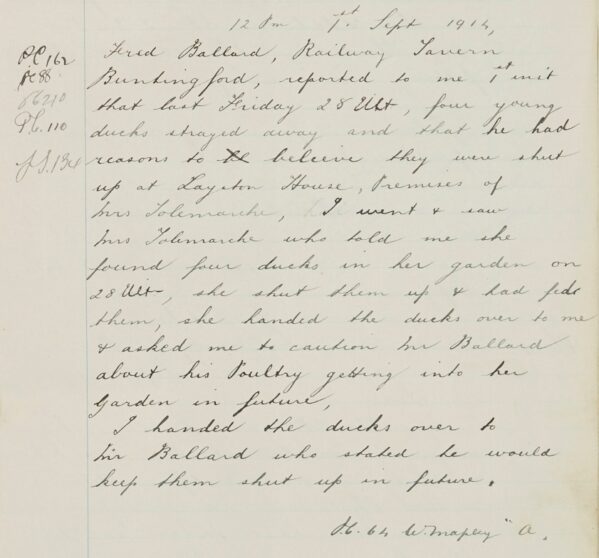 12 Pm 1st Sept 1914,
P.C. 162
PC 88
Pc 210
P.C. 110
P.S. 134
Fred Ballard, Railway Tavern
Buntingford, reported to me 1st inst
that last Friday 28 Ult, four young
ducks strayed away and that he had
reasons to beleive they were shut
up at Layston House, Premises of
Mrs Tolemarche, I went & saw
Mrs Tolemarche who told me she
found four ducks in her garden on
28 Ult, she shut them up & had fed
them, she handed the ducks over to me
& asked me to caution Mr Ballard
about his Poultry getting into her
Garden in future,
I handed the ducks over to
Mr Ballard who stated he would
keep them shut up in future.
P.C. 64 W. Mapley "A.